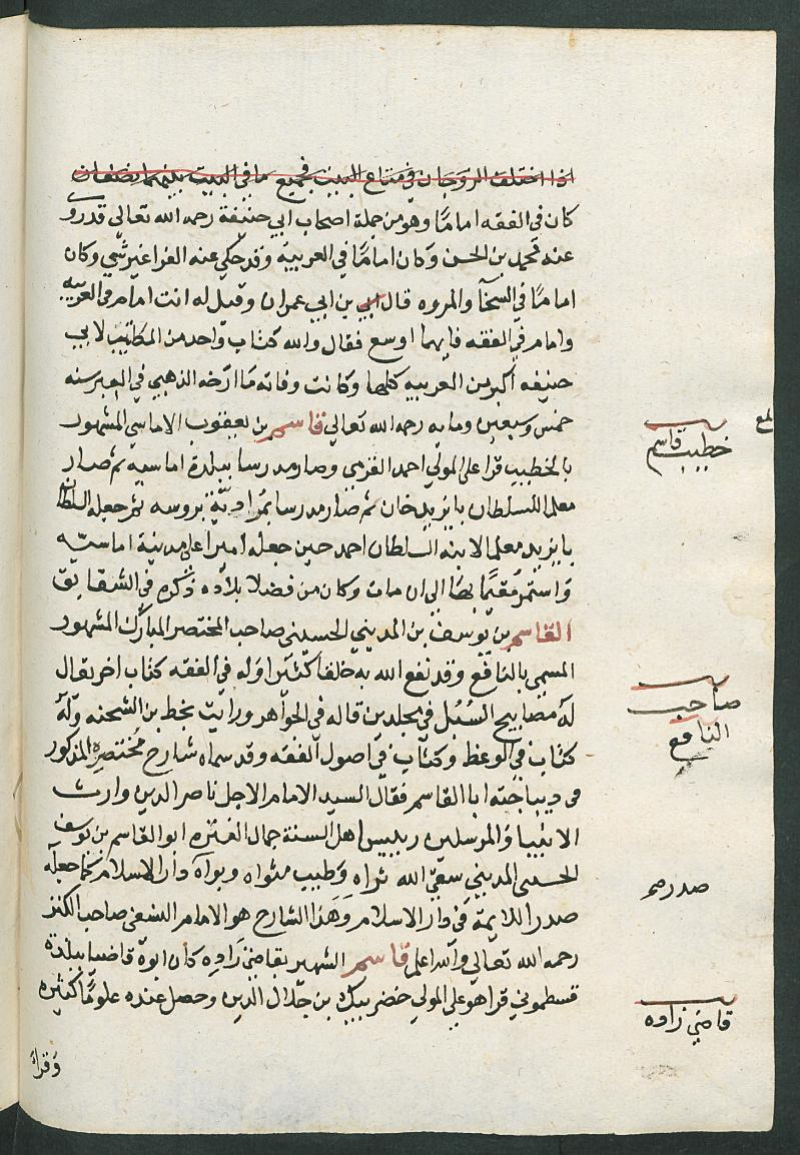 اذا اختلف الزوجان في متاع البيت فجميع ما في البيت بينهما نصفان
كان في الفقه اماما وهو من جملة اصحاب ابي حنيفة رحمه الله تعالى قد روي
عنه محمد بن الحسن وكان اماما في العربية وقد حكي عنه الفرا غير شي وكان
اماما في السخا والمروه قال ابي بن ابي عمران وقيل له انت امام في العربيه
وامام في الفقه فايهما اوسع فقال والله كتاب واحد من المكاتب لابي
حنيفه اكبر من العربيه كلها وكانت وفاته ما ارخه الذهبي في العبر سنه
خمس وسبعين ومايه رحمه الله تعالى قاسم بن يعقوب الاماسي المشهور
بالخطيب قرا على المولي احمد القرمي وصار مدرسا ببلدة اماسيه ثم صار
معلما للسلطان بايزيد خان ثم صار مدرسا بمرادية بروسه ثم جعله السلطان
بايزيد معلما لابنه السلطان احمد حين جعله اميرا على مدينة اماسيه
واستمر مقيما بها الى ان مات وكان من فضلا بلاده ذكره في الشقايق
القاسم بن يوسف بن المديني الحسيني صاحب المختصر المبارك المشهور
المسمي بالنافع وقد نفع الله به خلقا كثيرا وله في الفقه كتاب اخر يقال
له مصابيح السبل في مجلدين قاله في الجواهر ورايت بخط بن الشحنه وله
كتاب في الوعظ وكتاب في اصول الفقه وقد سماه شارح مختصره المذكور
في ديباجته ابا القاسم فقال السيد الامام الاجل ناصر الدين وارث
الانبيا والمرسلين رييس اهل السنة جمال العتره ابو القاسم بن يوسف
الحسني المديني سقى الله ثراه وطيب مثواه وبوأه دار السلام كما جعله
صدر الايمة في دار الاسلام وهذا الشارح هو الامام النسفي صاحب الكنز
رحمه الله تعالى والله اعلم قاسم الشهير بقاضي زاده كان ابوه قاضيا ببلدة
قسطموني قرا هو على المولي خضر بيك بن جلال الدين وحصل عنده علوما كثيره
وقرا
خطيب قاسم
صاحب
النافع
صدر
قاضي زاده